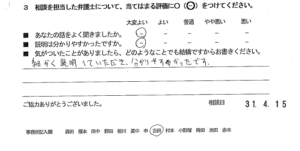 3 相談を担当した弁護士について、当てはまる評価に○（○）をつけてください。
大変よい よい 普通 やや悪い 悪い
■ あなたの話をよく聞きましたか。
■ 説明は分かりやすかったですか。
■ 気がついたことがありましたら、どのようなことでも結構ですからお書きください。
細かく説明していただき、分かりやすかったです。
ご協力ありがとうございました。
相談日 31.4.15
事務局記入欄